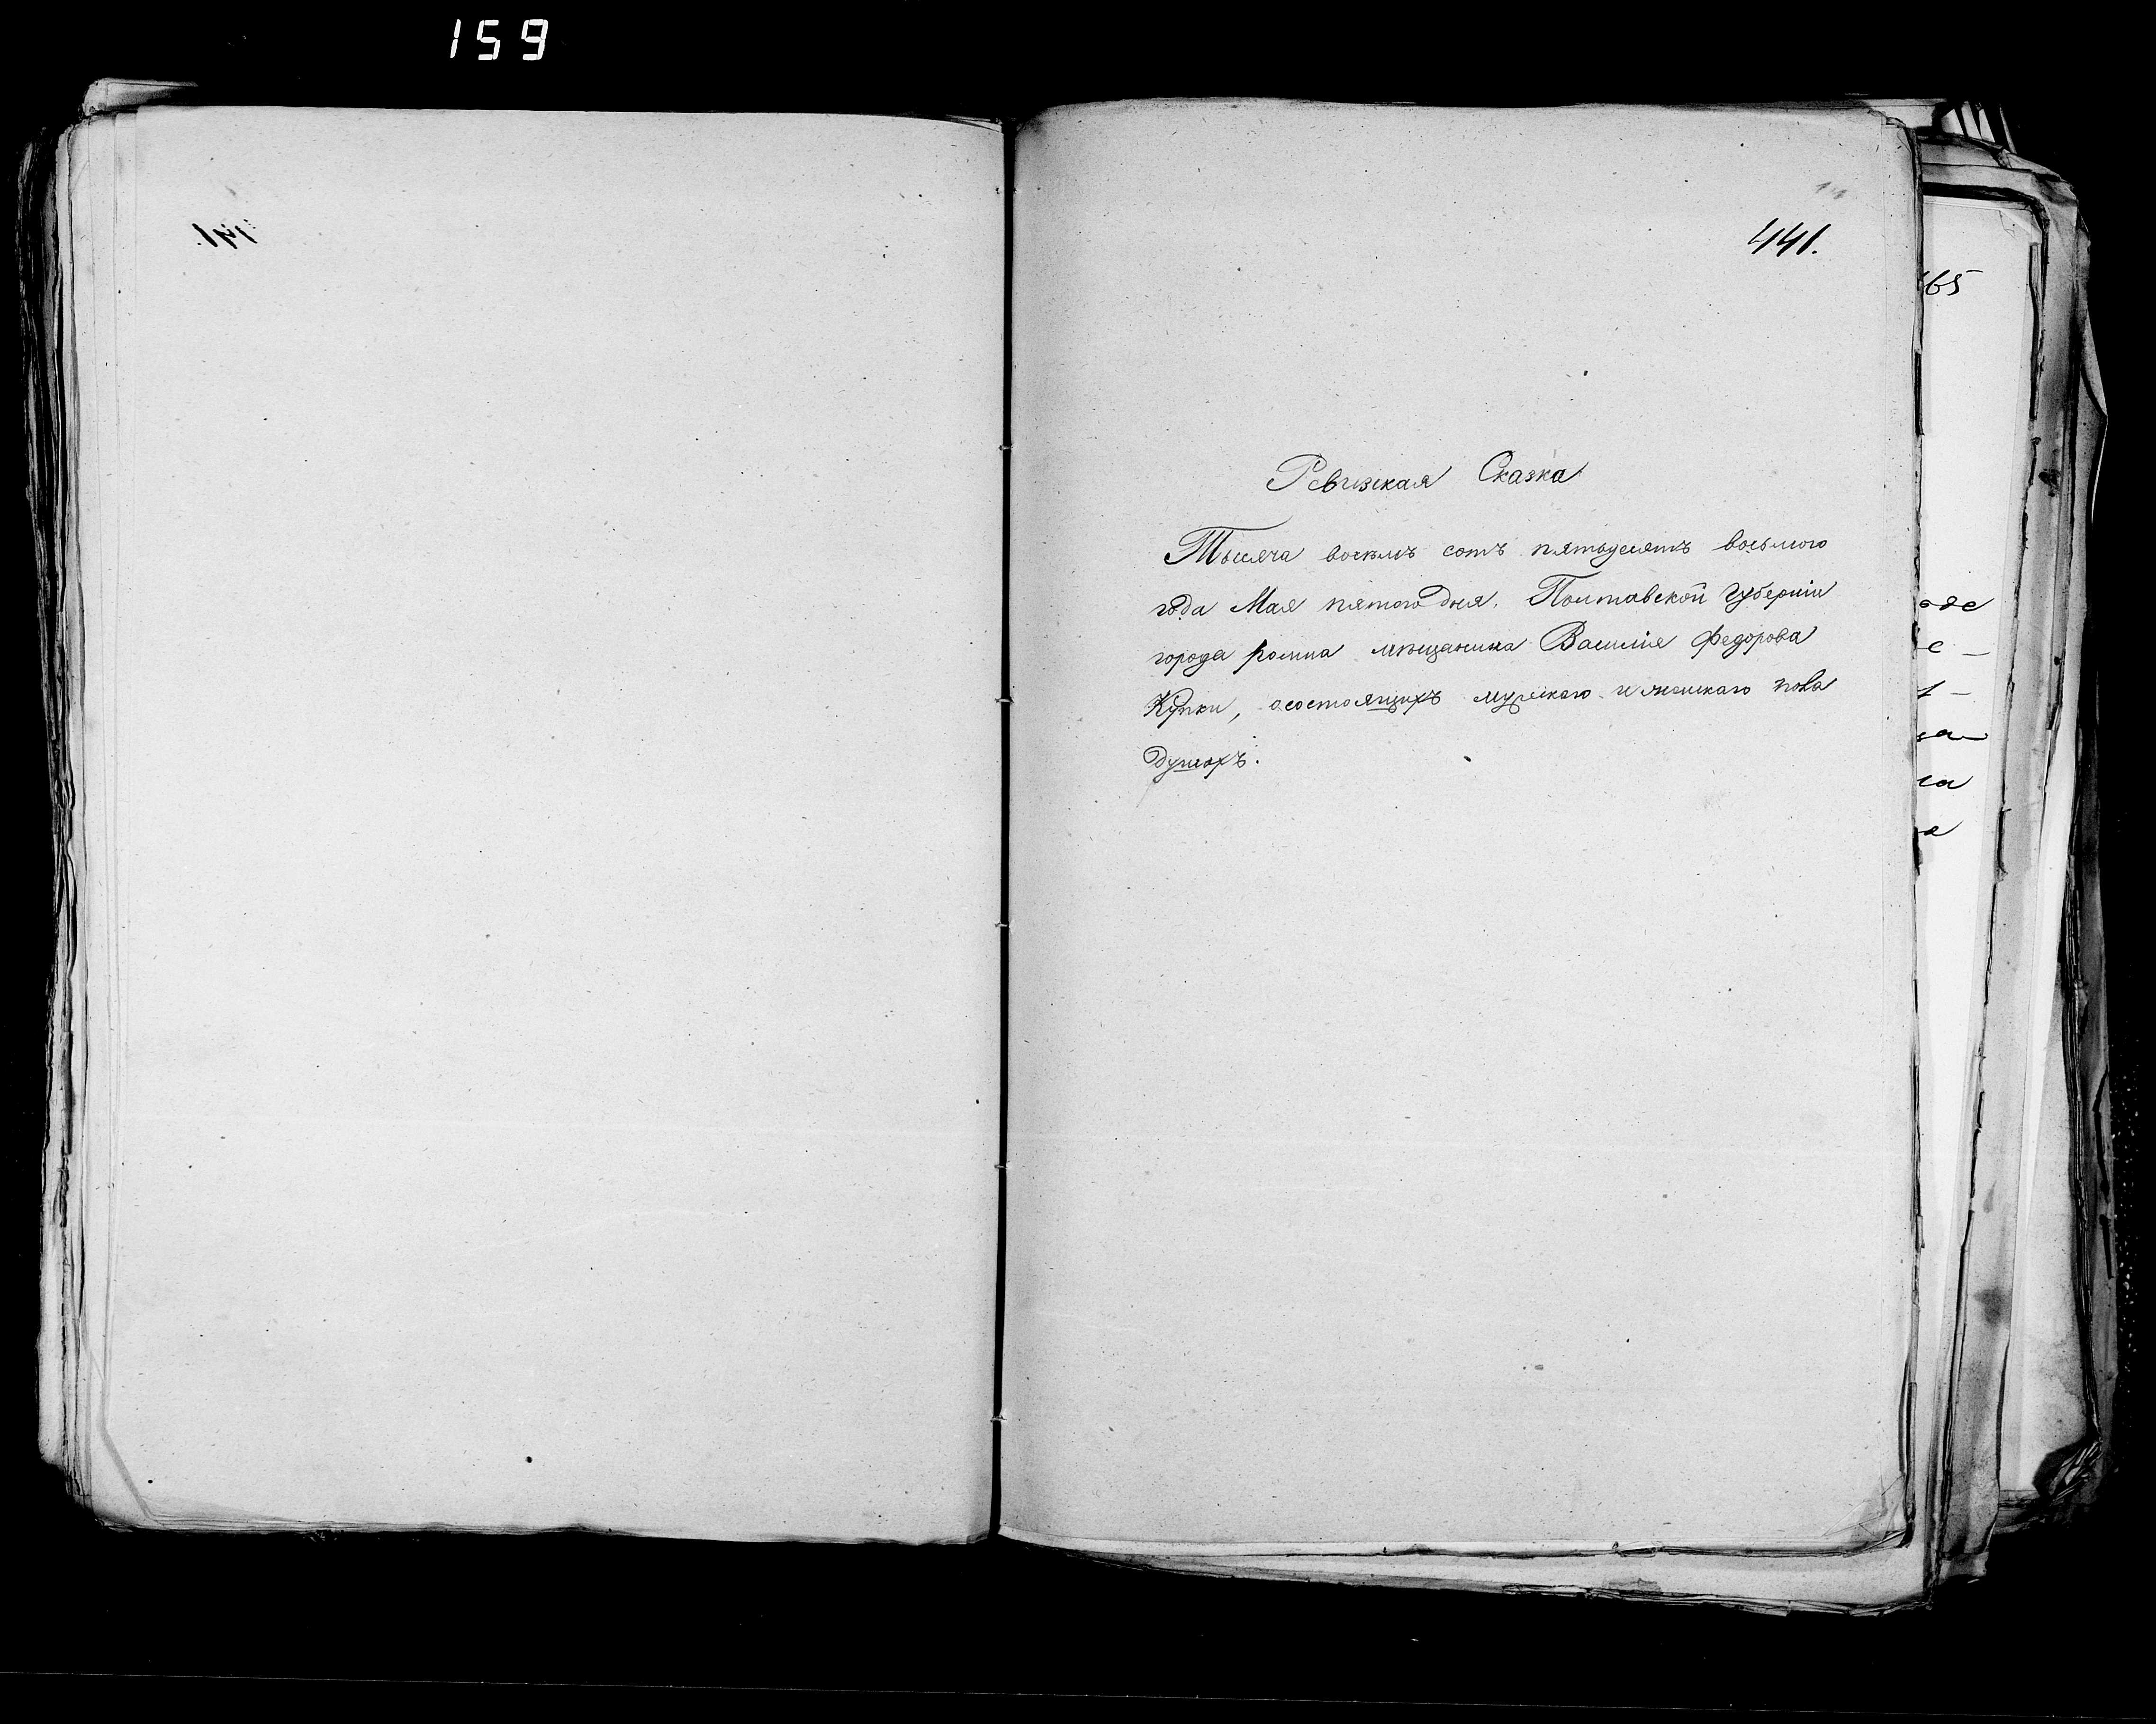 159
441.
Ревизская Сказка
Тысяча восемь сотъ пятьдесятъ восьмого
года Мая пятого дня. Полтавской Губерніи
города ромна мѣщанина Василія Федорова
Купки, осостоящихъ мужскаго и женскаго пола
душахъ.
65
оде
е -
за
са